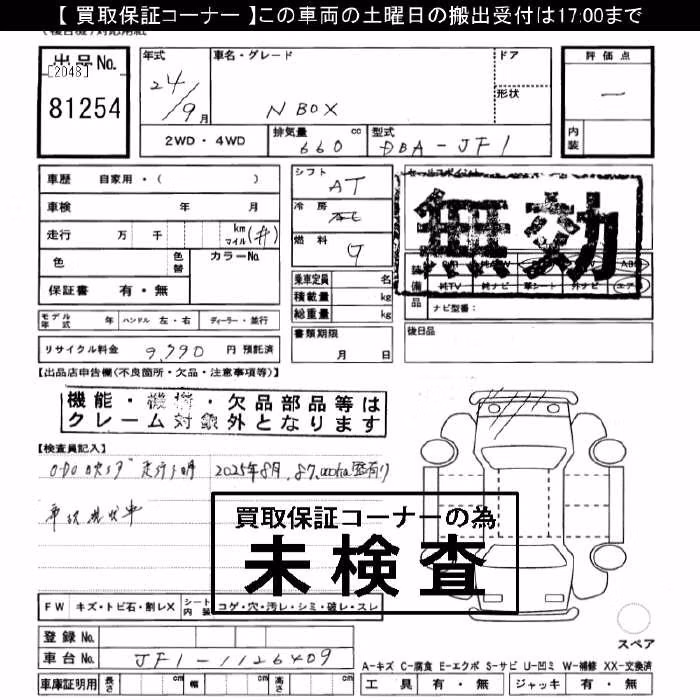 【 買取保証コーナー 】この車両の土曜日の搬出受付は17:00まで
出品No.
[2048]
81254
年式
24/9月
車名・グレード
N BOX
ドア
形状
評価点
一
内装
2WD・4WD
排気量 660 cc
型式 DBA-JF1
車歴 自家用・( )
車検 年 月
走行 万 千 km マイル (#)
色 色替 カラーNo.
保証書 有・無
モデル年式 年 ハンドル 左・右 ディーラー・並行
リサイクル料金 9,390 円 預託済
シフト AT
冷房
燃料 G
乗車定員 名
積載量 kg
総重量 kg
書類期限
月 日
セールスポイント
無効
装備品
純TV 純ナビ 革シート 外ナビ エア
ナビ型番:
後日品
【出品店申告欄(不良箇所・欠品・注意事項等)】
機能・機構・欠品部品等は
クレーム対象外となります
【検査員記入】
走行不明 2025年8月
買取保証コーナーの為
未検査
FW キズ・トビ石・割レX シート内装 コゲ・穴・汚レ・シミ・破レ・スレ
登録No.
車台No. JF1-1126409
車庫証明用 長さ cm 幅 cm 高さ cm
スペア
A-キズ C-腐食 E-エクボ S-サビ U-凹ミ W-補修 XX-交換済
工具 有・無 ジャッキ 有・無